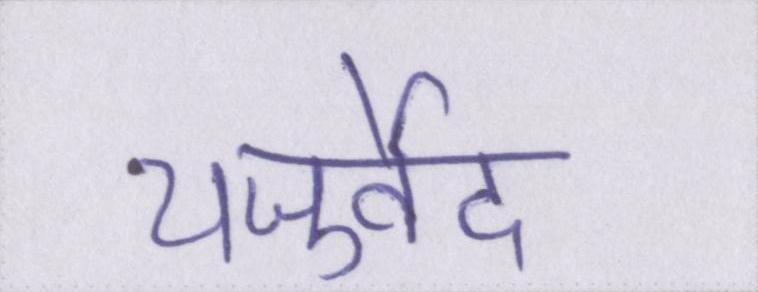 यजुर्वेद